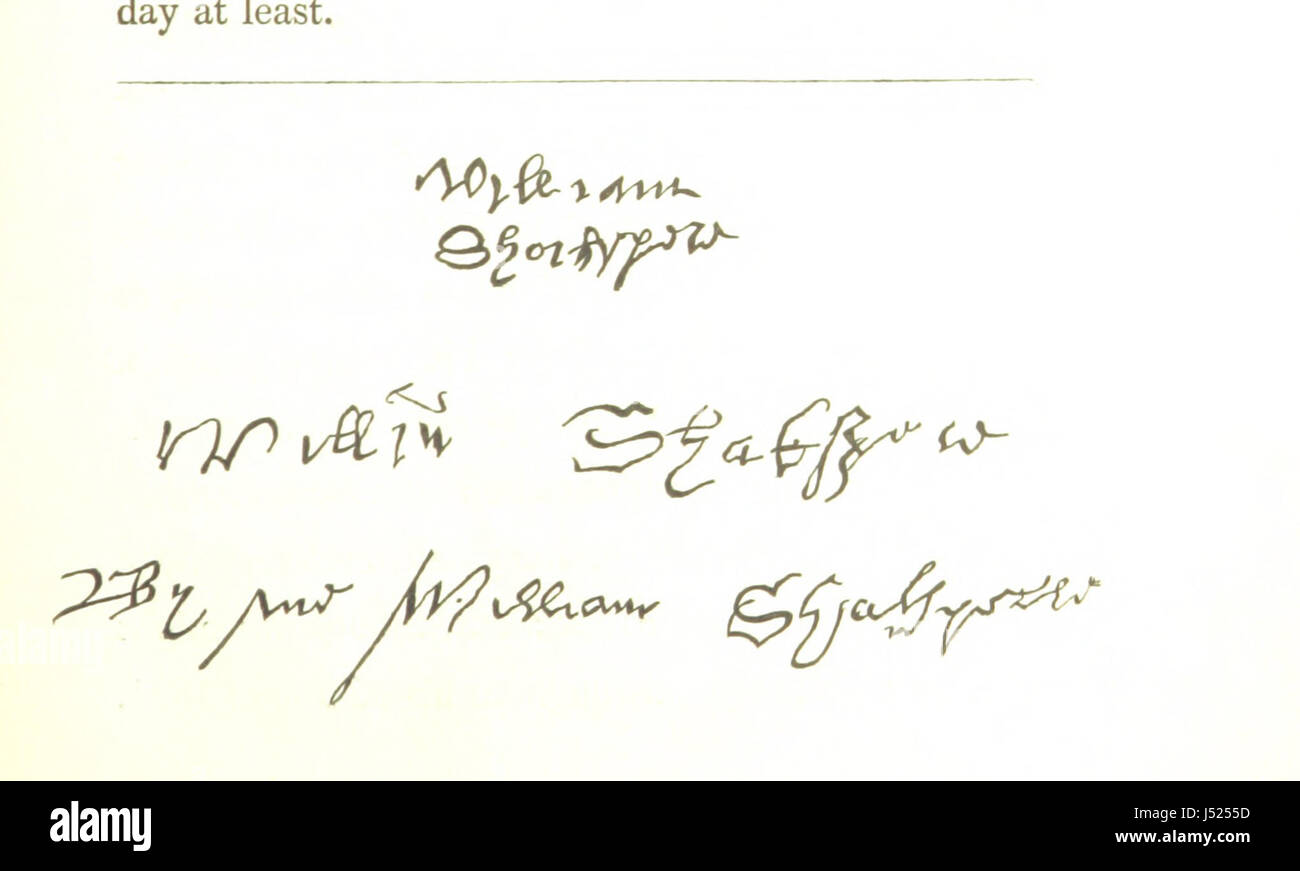 day at least.
William
Shakspere
Willm Shakspere
By me William Shakspeare
alamy
Image ID: J5255D
www.alamy.com